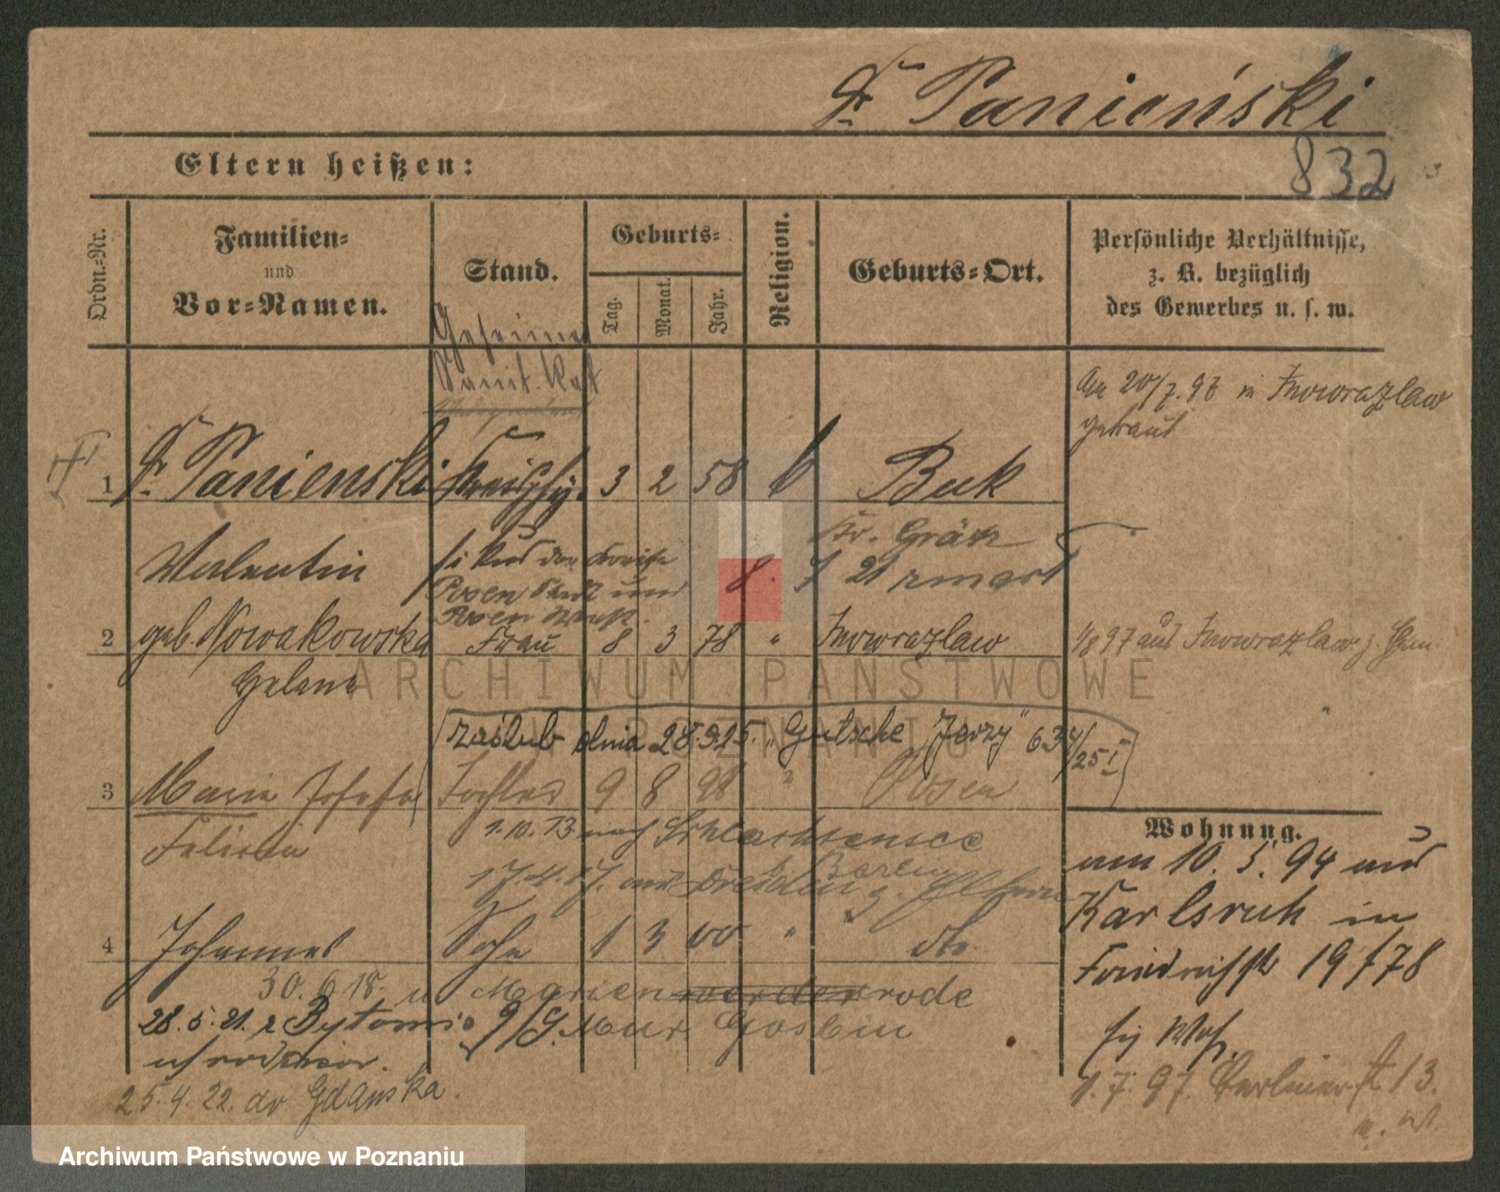 Dr. Panieński
832
Eltern heißen:
Ordn.-Nr.
Familien-
und
Vor-Namen.
Stand.
Geburts-
Tag.
Monat.
Jahr.
Religion.
Geburts-Ort.
Persönliche Verhältnisse,
z. B. bezüglich
des Gewerbes u. s. w.
Geheimer
Sanit. Rat
Am 20/7. 96 in Inowrazlaw
getraut
1 Dr. Panienski 3 2 58 Buk
Kr. Grätz
Valentin
Posen Stadt und
Posen West.
2 geb. Nowakowska Frau 8 3 78 " Inowrazlaw
97 aus Inowrazlaw z.
Helene
zaślub dnia "Gutsche Jerzy" 634/25 I
3 Maria Josefa Tochter 9 8 98 " Posen
Felicia
1.10.13 nach Schlachtensee
Berlin
17.4.17. aus Dresden z. Eltern
4 Johannes Sohn 1 3 00 " dto.
30.6.18. Marienwerderrode
28.5.21. z Bytomia 9/9. Mur Goslin
25.4.22. do Gdańska.
Wohnung.
am 10. 5. 94 aus
Karlsruh in
Friedrichstr 19/78
1.7.97. Berlinerst 13.
ARCHIWUM PAŃSTWOWE
W POZNANIU
Archiwum Państwowe w Poznaniu